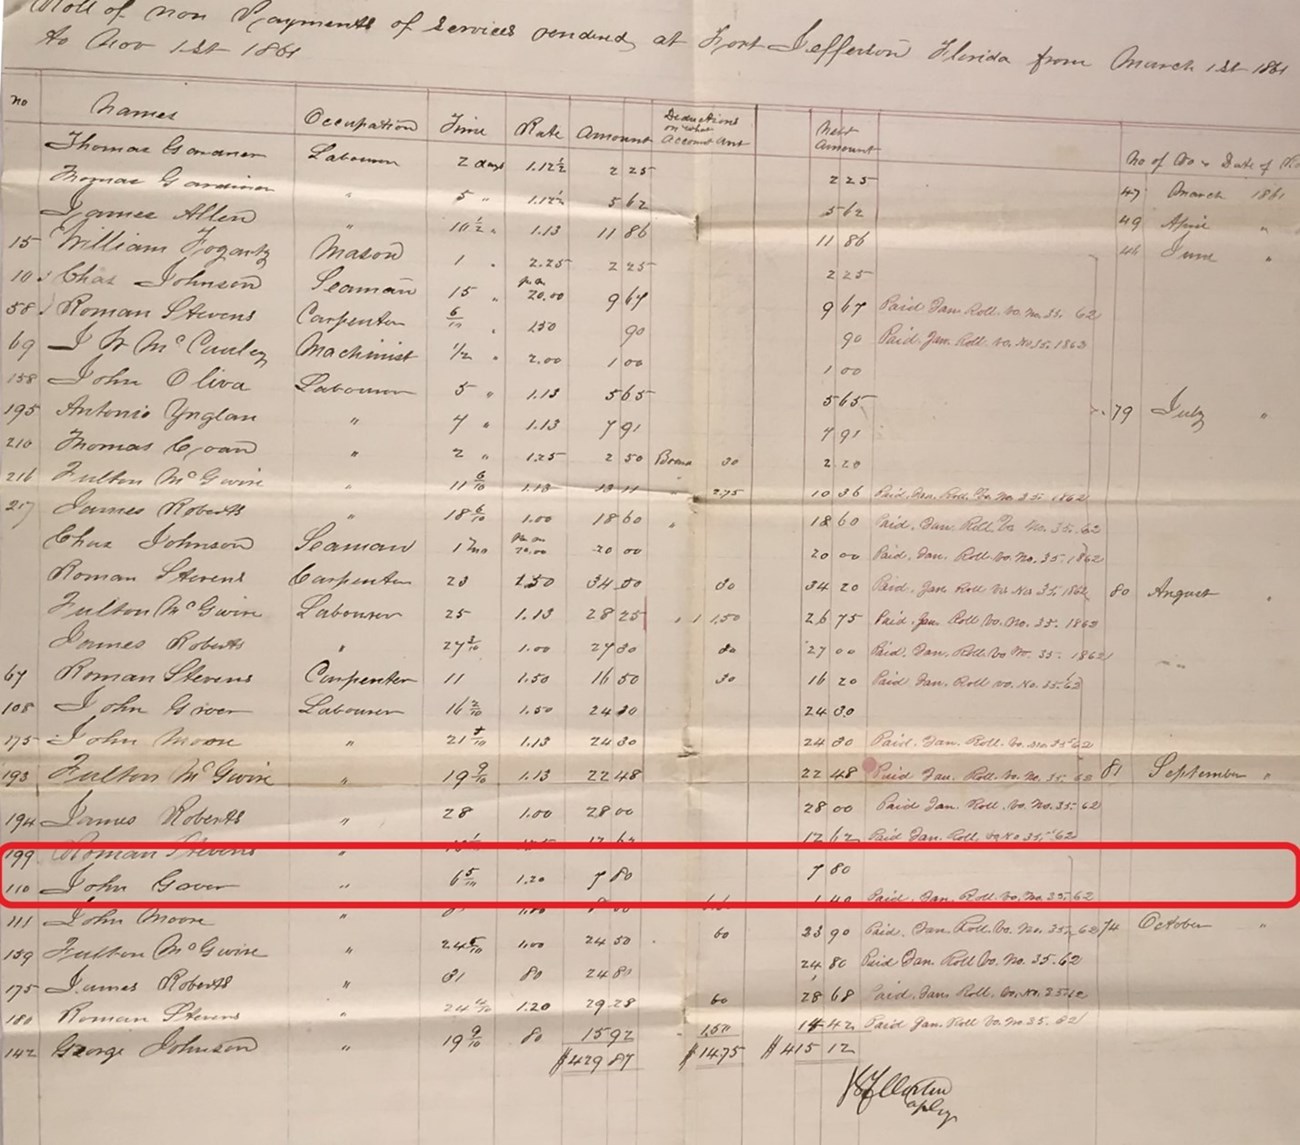 Roll of non Payments of Services rendered, at Fort Jefferson Florida from March 1st 1861
to Nov 1st 1861
no Names Occupation Time Rate Amount Deductions on what Account amt Nett Amount No of Vo Date of
Thomas Gardner Labourer 2 days 1.12½ 2 25 2 25 47 March 1861
Thomas Gardiner " 5 " 1.12½ 5 62 5 62 49 April "
James Allen " 10½ " 1.13 11 86 11 86 46 June "
15 William Fogarty Mason 1 " 2.25 2 25 2 25
10 Chas Johnson Seaman 15 " 20.00 9 67 9 67 Paid Jan. Roll. Vo. No. 35. 62
58 Roman Stevens Carpenter 6/10 " 1.50 90 90 Paid Jan. Roll Vo. No 35. 1862
69 J W McCauley Machinist ½ " 2.00 1 00 1 00
158 John Oliva Labourer 5 " 1.13 5 65 5 65
195 Antonio Ynglan " 7 " 1.13 7 91 7 91 79 July "
210 Thomas " 2 " 1.25 2 50 30 2 20
216 Fulton McGwire " 11 6/10 1.13 13 11 " 2.75 10 36 Paid Jan. Roll. Vo. No. 35. 1862
217 James Roberts " 18 6/10 1.00 18 60 " 18 60 Paid. Jan. Roll Vo. No. 35. 62
Chas Johnson Seaman 1 mo 20.00 20 00 20 00 Paid Jan. Roll. Vo. No. 35. 1862
Roman Stevens Carpenter 23 1.50 34 50 30 34 20 Paid. Jan. Roll Vo. No. 35. 1862 80 August "
Fulton McGwire Labourer 25 1.13 28 25 " 1.50 26 75 Paid Jan. Roll Vo. No. 35. 1862
James Roberts " 27 3/10 1.00 27 30 30 27 00 Paid. Jan. Roll Vo No. 35. 1862
67 Roman Stevens Carpenter 11 1.50 16 50 30 16 20 Paid Jan. Roll Vo. No. 35. 62
108 John Grover Labourer 16 2/10 1.50 24 30 24 30
175 John Moore " 21 5/10 1.13 24 30 24 30 Paid. Jan. Roll Vo. No 35 62
193 Fulton McGwire " 19 9/10 1.13 22 48 22 48 Paid Jan. Roll. Vo. No. 35. 62 81 September "
194 James Roberts " 28 1.00 28 00 28 00 Paid Jan. Roll. Vo. No. 35. 62
199 Roman Stevens " 17 62 Paid Jan. Roll, Vo No 35. 62
110 John Gover " 6 5/10 1.20 7 80 7 80
111 John Moore " 1 40 Paid. Jan. Roll Vo. No. 35. 62
159 Fulton McGwire " 24 5/10 1.00 24 50 60 23 90 Paid. Jan. Roll Vo. No. 35. 62 74 October "
175 James Roberts " 31 80 24 80 24 80 Paid Jan. Roll Vo. No. 35. 62
180 Roman Stevens " 24 4/10 1.20 29.28 60 28 68 Paid. Jan. Roll. Vo. No. 35. 62
142 George Johnson " 19 9/10 80 15 92 1.50 14 42 Paid Jan. Roll Vo. No 35. 62
$429 87 $14.75 $415 12